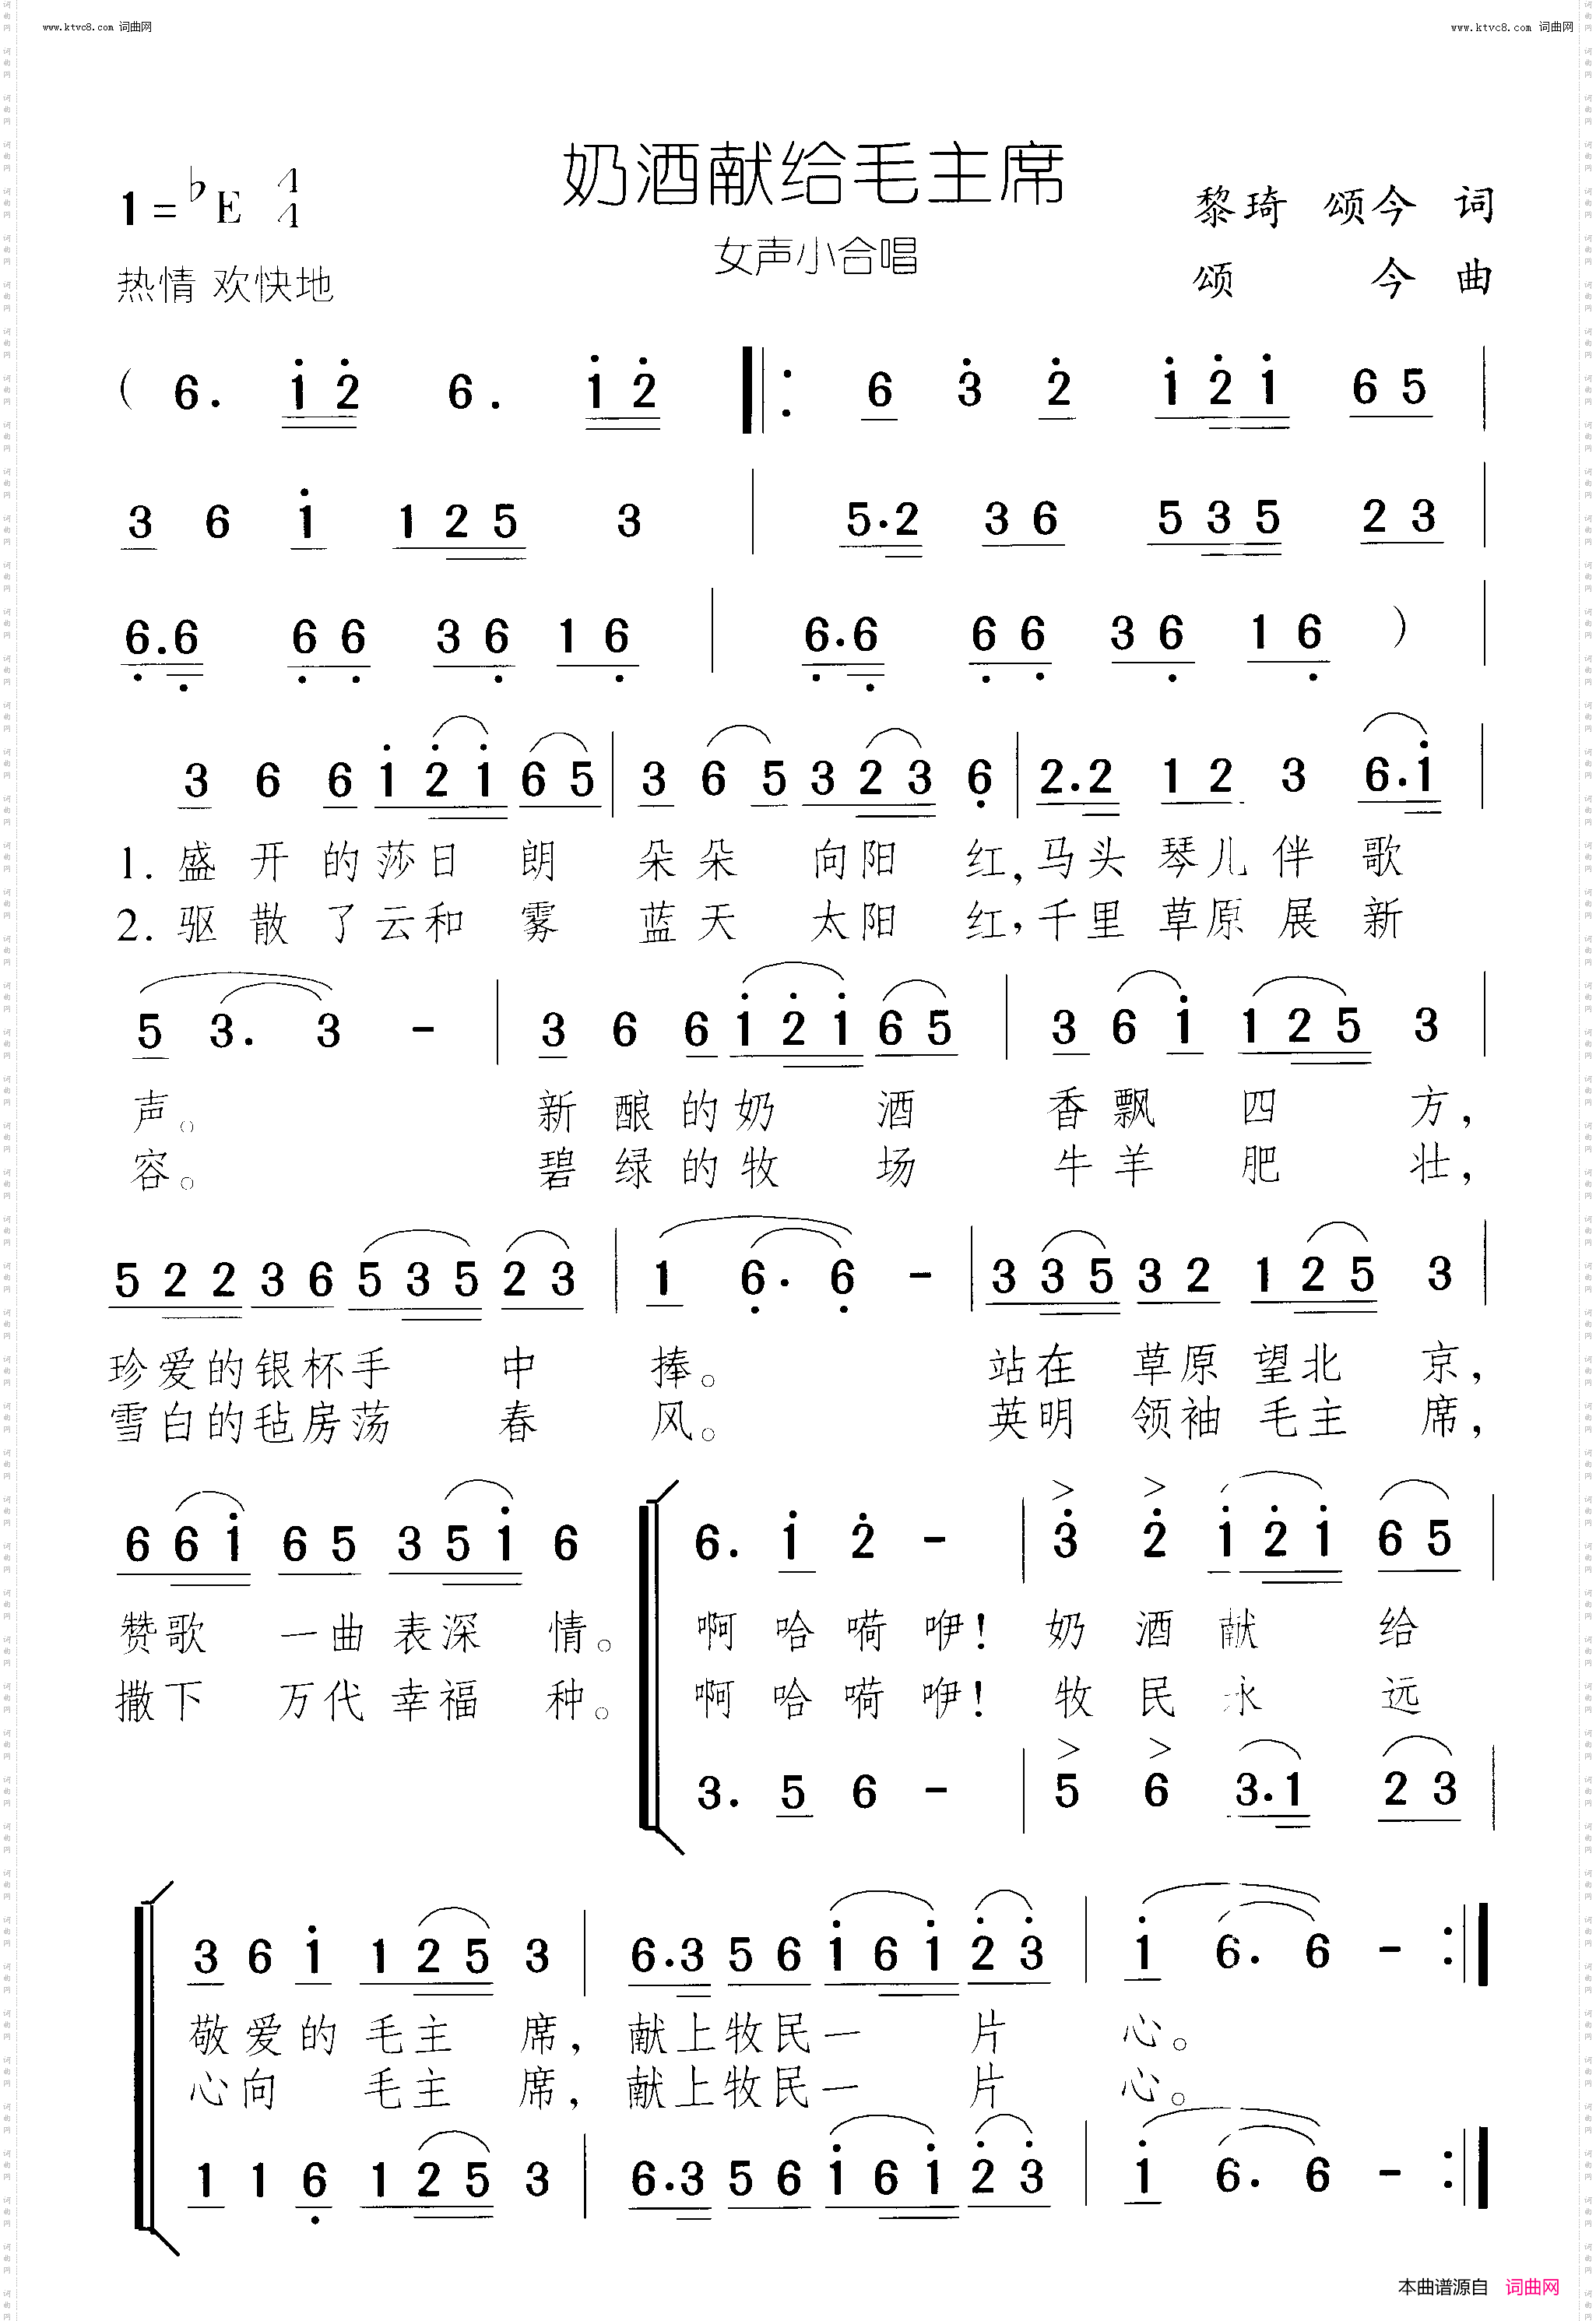 www.ktvc8.com 词曲网
www.ktvc8.com 词曲网
奶酒献给毛主席
1=♭E 4/4
黎琦 颂今 词
女声小合唱
热情 欢快地
颂 今 曲
( 6. i̇ 2̇ 6. i̇ 2̇ ‖: 6 3̇ 2̇ i̇ 2̇ i̇ 6 5 |
3 6 i̇ 1 2 5 3 | 5.2 3 6 5 3 5 2 3 |
6̣.6̣ 6̣ 6̣ 3 6̣ 1 6̣ | 6̣.6̣ 6̣ 6̣ 3 6̣ 1 6̣ ) |
3 6 6 i̇ 2̇ i̇ 6 5 | 3 6 5 3 2 3 6̣ | 2.2 1 2 3 6.i̇ |
1. 盛开的莎日朗 朵朵向阳红,马头琴儿伴歌
2. 驱散了云和雾 蓝天太阳红,千里草原展新
5 3. 3 - | 3 6 6 i̇ 2̇ i̇ 6 5 | 3 6 i̇ 1 2 5 3 |
声。 新酿的奶酒 香飘四方,
容。 碧绿的牧场 牛羊肥壮,
5 2 2 3 6 5 3 5 2 3 | 1 6̣. 6̣ - | 3 3 5 3 2 1 2 5 3 |
珍爱的银杯手中捧。 站在草原望北京,
雪白的毡房荡春风。 英明领袖毛主席,
6 6 i̇ 6 5 3 5 i̇ 6 6. i̇ 2̇ - | 3̇ 2̇ i̇ 2̇ i̇ 6 5 |
赞歌一曲表深情。 啊哈嗬咿! 奶酒献给
撒下万代幸福种。 啊哈嗬咿! 牧民永远
3. 5 6 - | 5 6 3.1 2 3 |
3 6 i̇ 1 2 5 3 | 6.3 5 6 i̇ 6 i̇ 2̇ 3̇ | i̇ 6. 6 - :‖
敬爱的毛主席, 献上牧民一片心。
心向毛主席, 献上牧民一片心。
1 1 6̣ 1 2 5 3 | 6.3 5 6 i̇ 6 i̇ 2̇ 3̇ | i̇ 6. 6 - :‖
本曲谱源自 词曲网